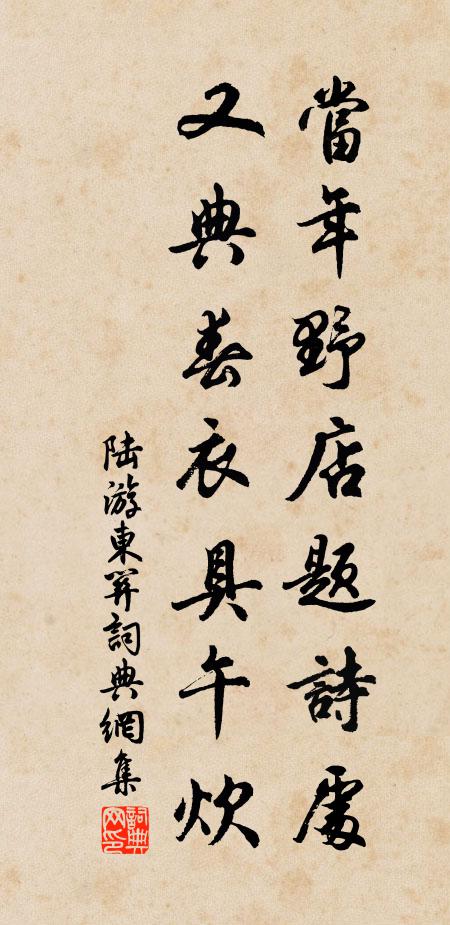 當年野店題詩處
又典春衣具午炊
陸游東關詞典網集
詞典网印